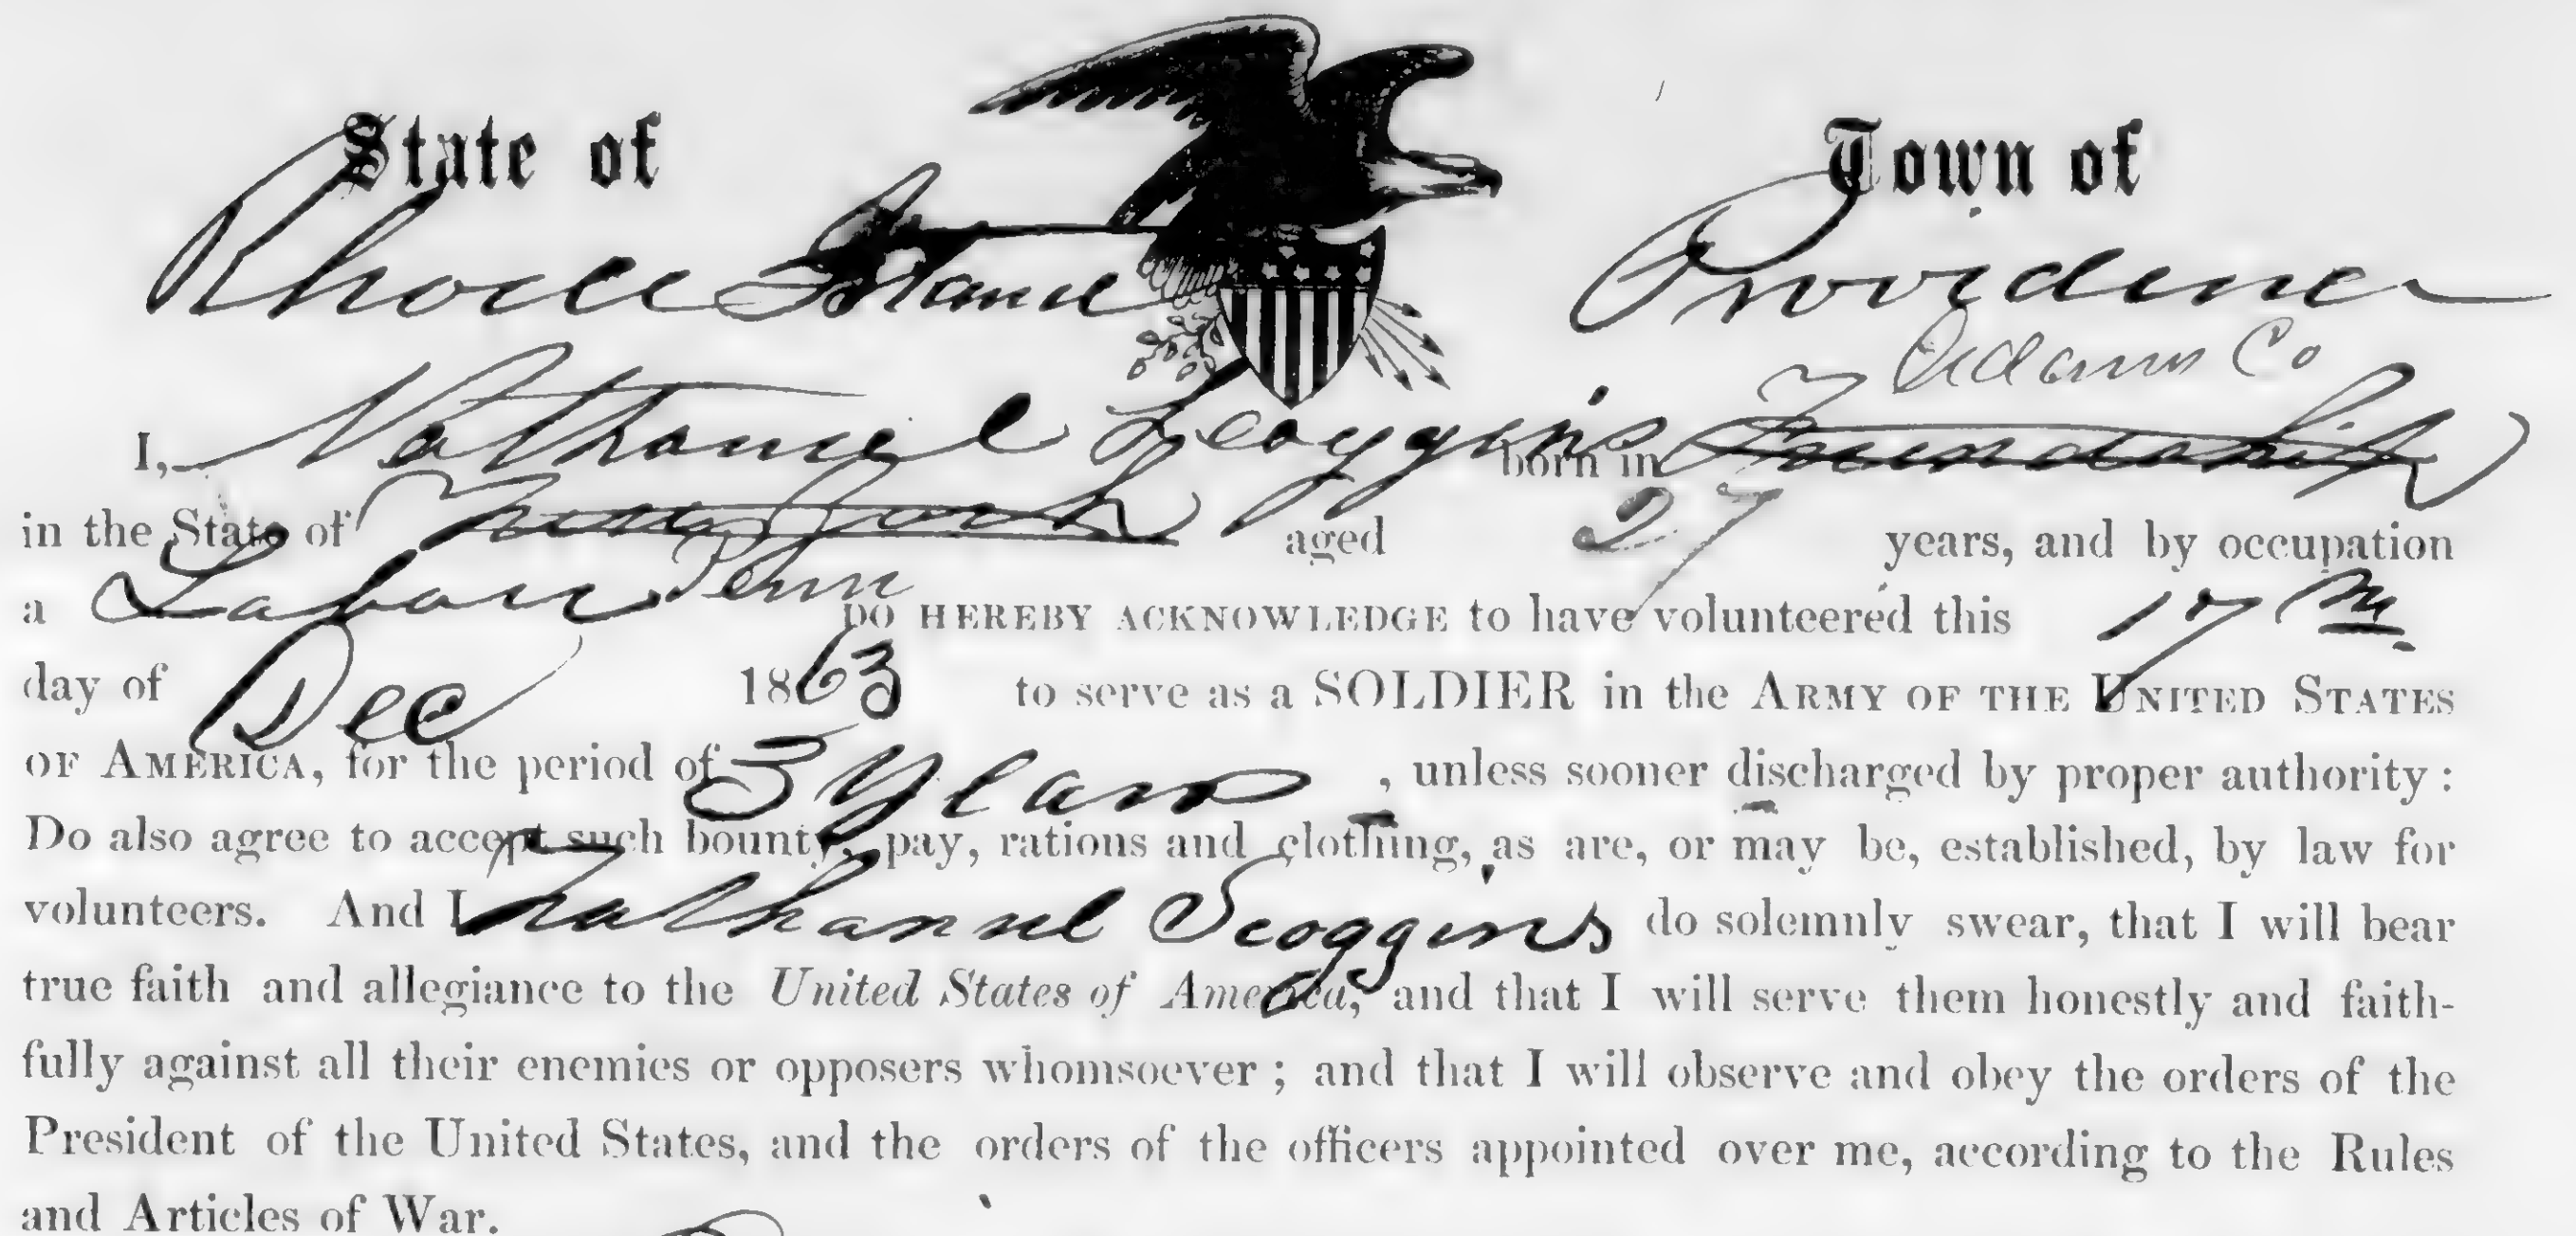 State of Town of
Rhode Island Providence
Adams Co
I, Nathaniel Scoggins born in
in the State of New York aged 27 years, and by occupation
a Laborer Penn DO HEREBY ACKNOWLEDGE to have volunteered this 17th
day of Dec 1863 to serve as a SOLDIER in the ARMY OF THE UNITED STATES
OF AMERICA, for the period of 3 Years, unless sooner discharged by proper authority:
Do also agree to accept such bounty, pay, rations and clothing, as are, or may be, established, by law for
volunteers. And I Nathaniel Scoggins do solemnly swear, that I will bear
true faith and allegiance to the United States of America, and that I will serve them honestly and faith-
fully against all their enemies or opposers whomsoever; and that I will observe and obey the orders of the
President of the United States, and the orders of the officers appointed over me, according to the Rules
and Articles of War.